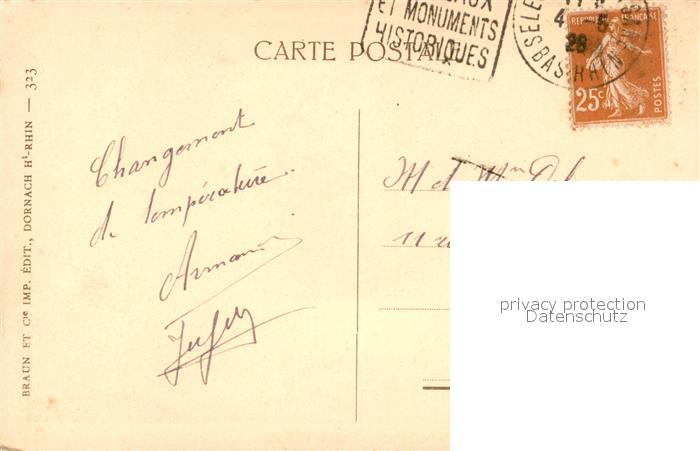 ET MONUMENTS
HISTORIQUES
CARTE POSTALE
SELE
4
28
BAS-RHIN
REPUBLIQUE FRANCAISE
25c
POSTES
BRAUN ET Cie IMP. ÉDIT., DORNACH Ht-RHIN — 323
Changement
de température
Armand
M et Mme
11
privacy protection
Datenschutz